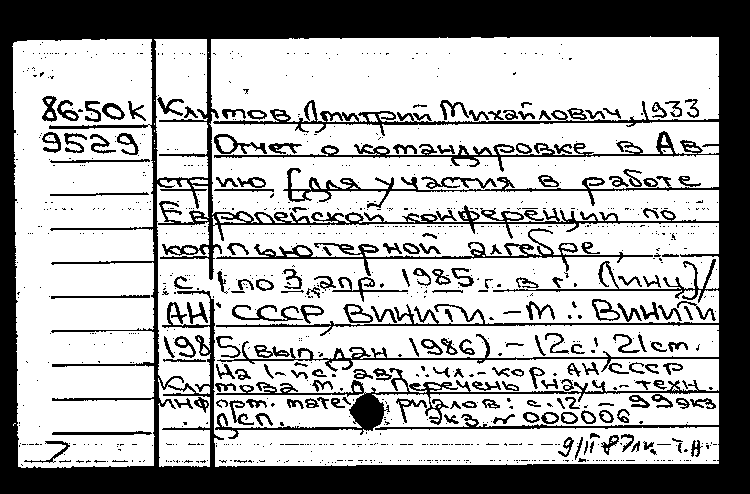 86-50К Климов, Дмитрий Михайлович, 1933
9529 Отчет о командировке в Ав-
стрию, [для участия в работе
Европейской конференции по
компьютерной алгебре,
с 1 по 3 апр. 1985 г. в г. Линц]/
АН СССР, ВИНИТИ. - М.: ВИНИТИ
1985 (вып. дан. 1986). - 12 с.; 21 см.
На 1-й с. авт.: чл.-кор. АН СССР
Климова Перечень науч.-техн.
информ. материалов: с. 12. - 99 экз
Экз. № 000006.